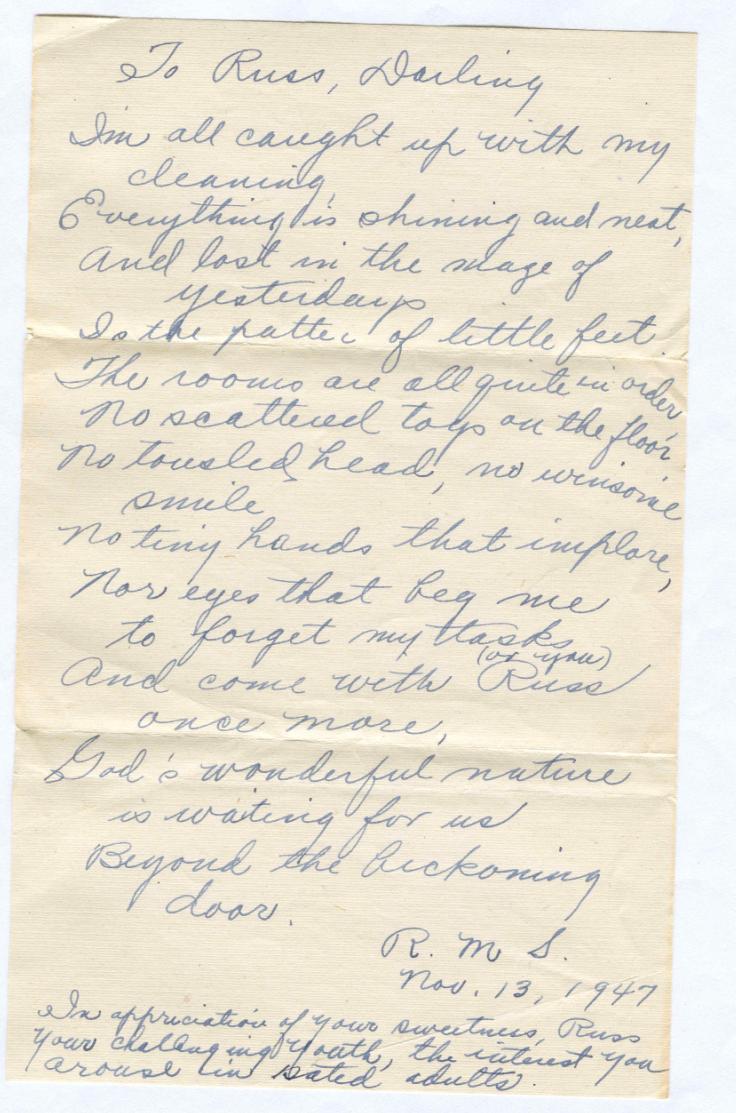 To Russ, Darling
I'm all caught up with my
cleaning,
Everything is shining and neat,
And lost in the maze of
yesterdays
Is the patter of little feet.
The rooms are all quite in order
No scattered toys on the floor
No tousled head, no winsome
smile
No tiny hands that implore,
Nor eyes that beg me
to forget my tasks
(or you)
And come with Russ
once more,
God's wonderful nature
is waiting for us
Beyond the beckoning
door.
R. M S.
Nov. 13, 1947
In appreciation of your sweetness, Russ
Your challenging Youth, the interest you
arouse in sated adults.